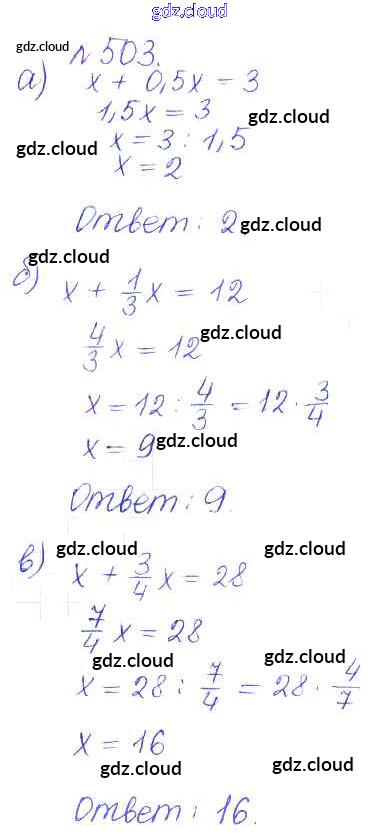 gdz.cloud
№ 503.
а) x + 0,5x = 3
1,5x = 3
gdz.cloud
gdz.cloud
x = 3 : 1,5
x = 2
Ответ: 2
gdz.cloud
gdz.cloud
б) x + 1/3 x = 12
4/3 x = 12
gdz.cloud
x = 12 : 4/3 = 12 · 3/4
x = 9
gdz.cloud
Ответ: 9.
gdz.cloud
gdz.cloud
в) x + 3/4 x = 28
7/4 x = 28
gdz.cloud
gdz.cloud
x = 28 : 7/4 = 28 · 4/7
x = 16
gdz.cloud
gdz.cloud
Ответ: 16.